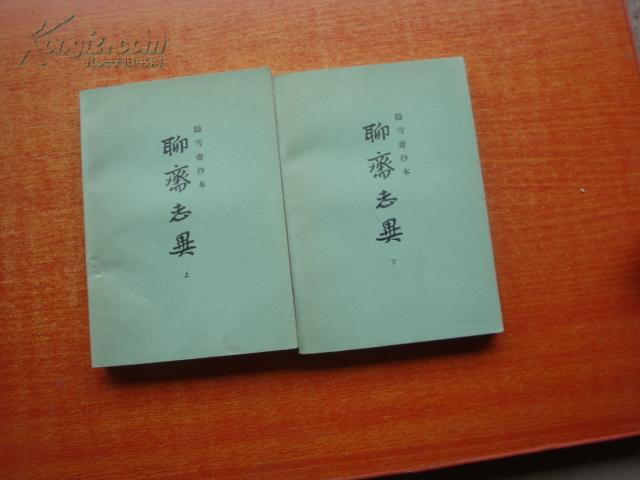 Kongfz.com
孔夫子旧书网
鑄雪齋抄本
聊齋志異
上
鑄雪齋抄本
聊齋志異
下